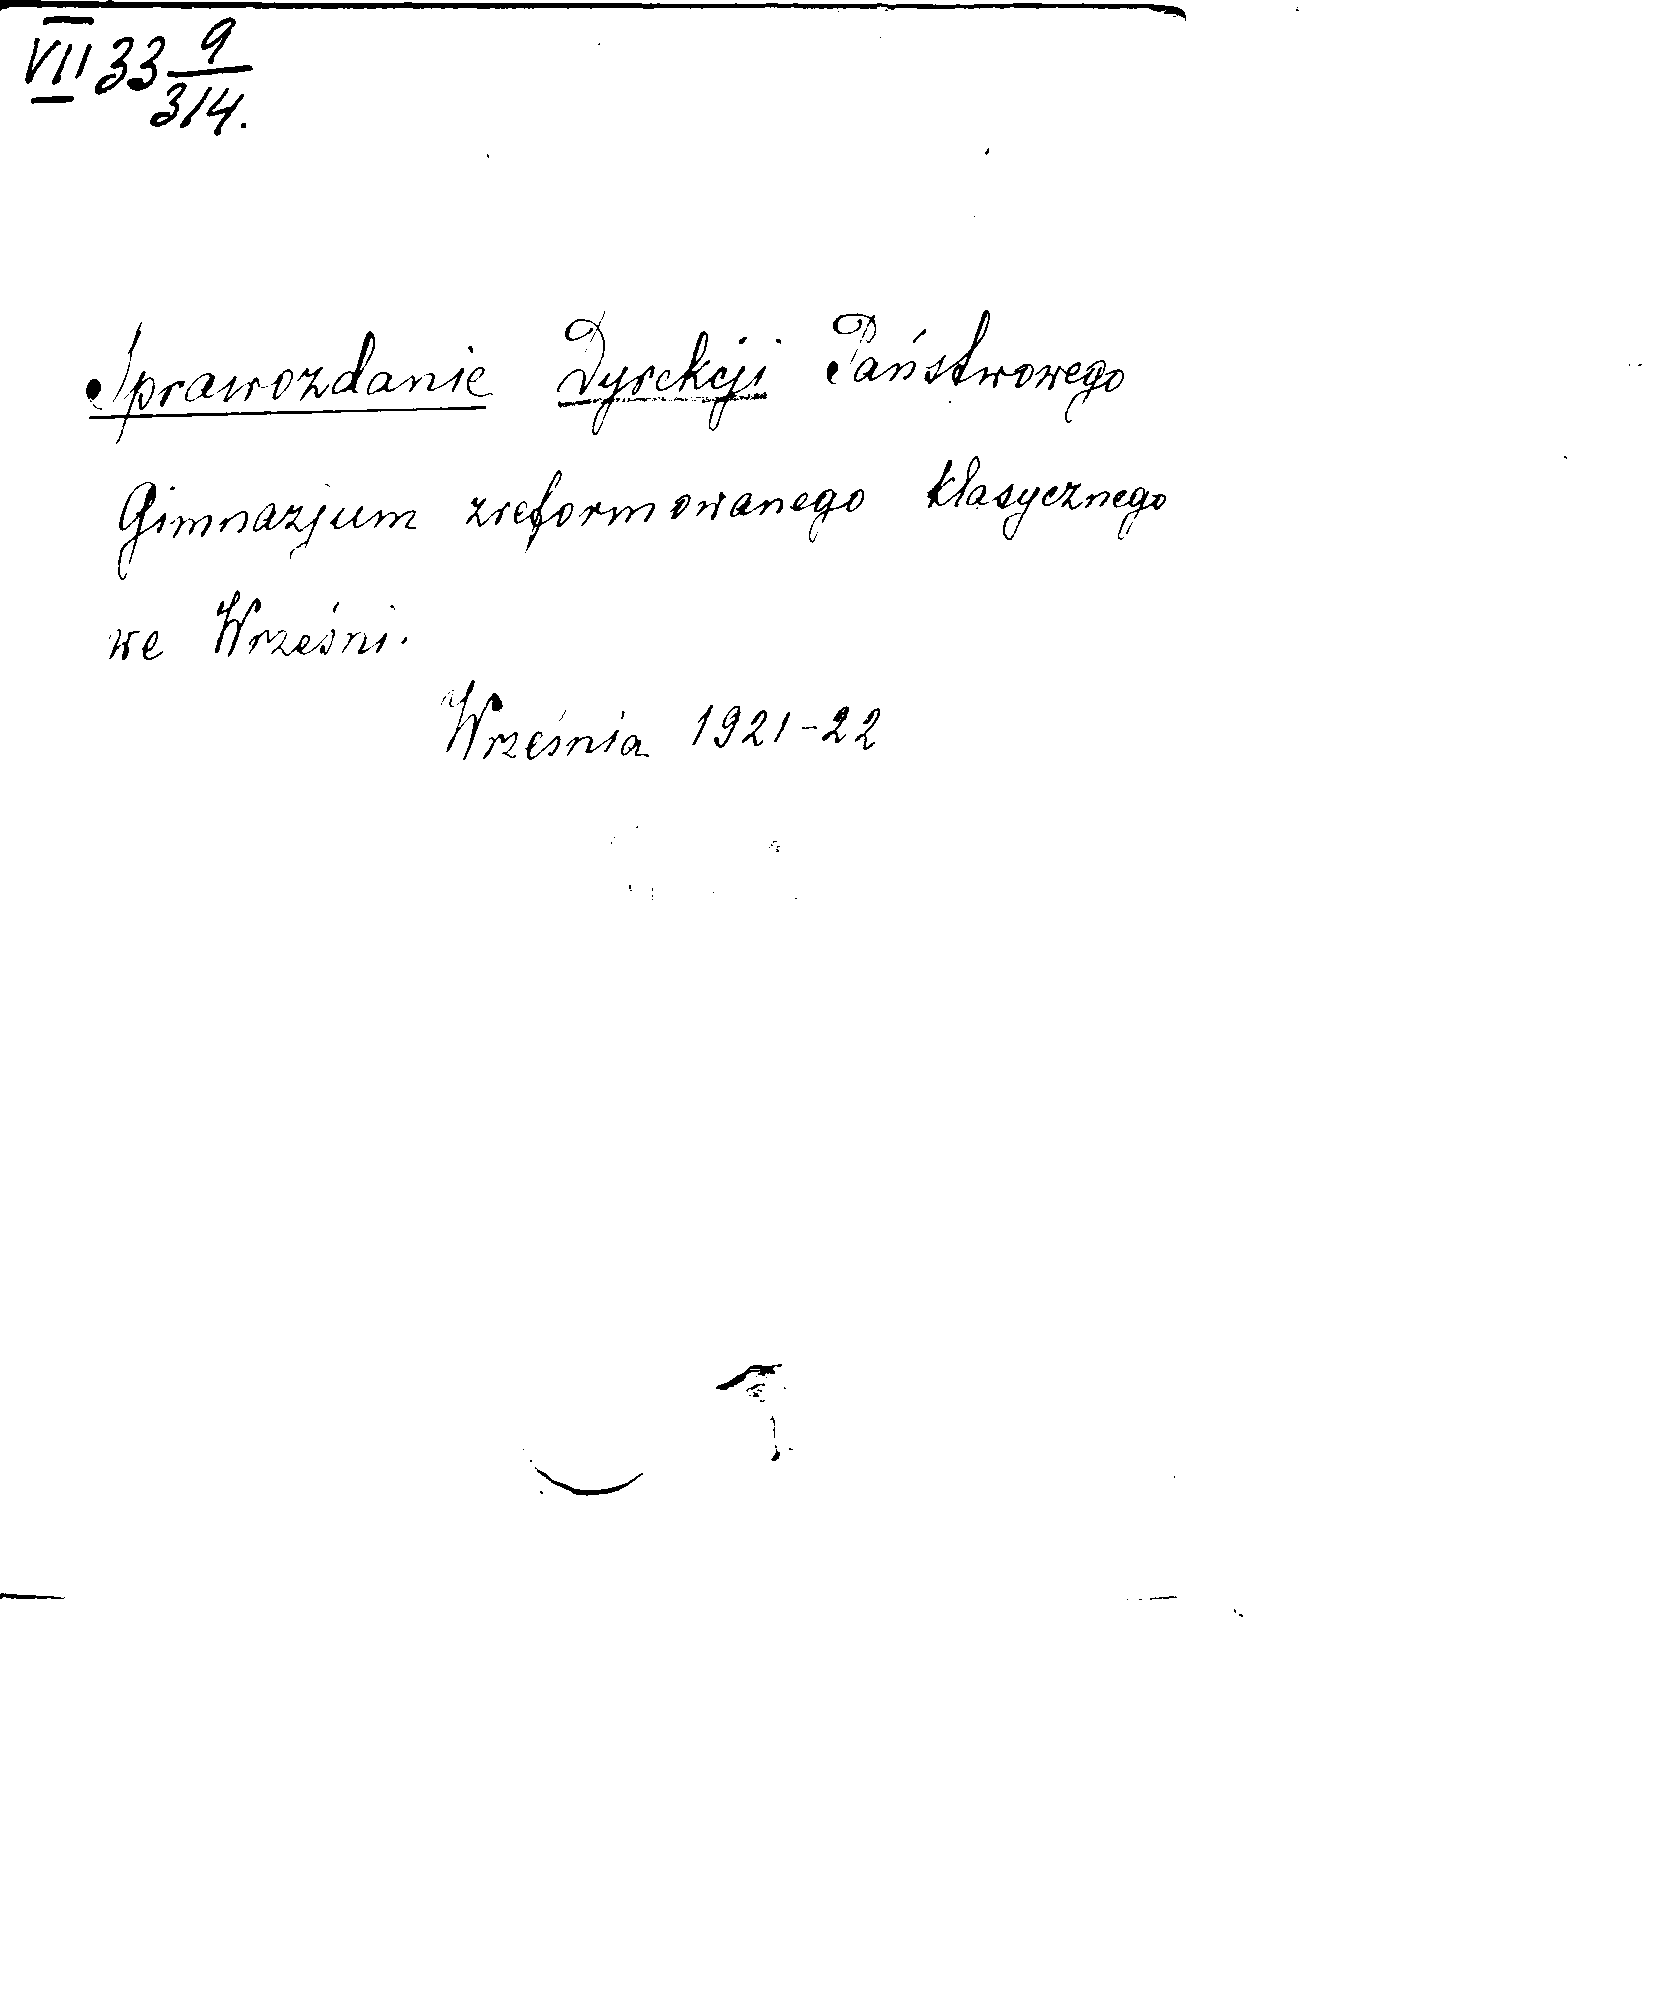 VII 33 9/314.
Sprawozdanie Dyrekcji Państwowego
Gimnazjum zreformowanego klasycznego
we Wrześni.
Września 1921-22